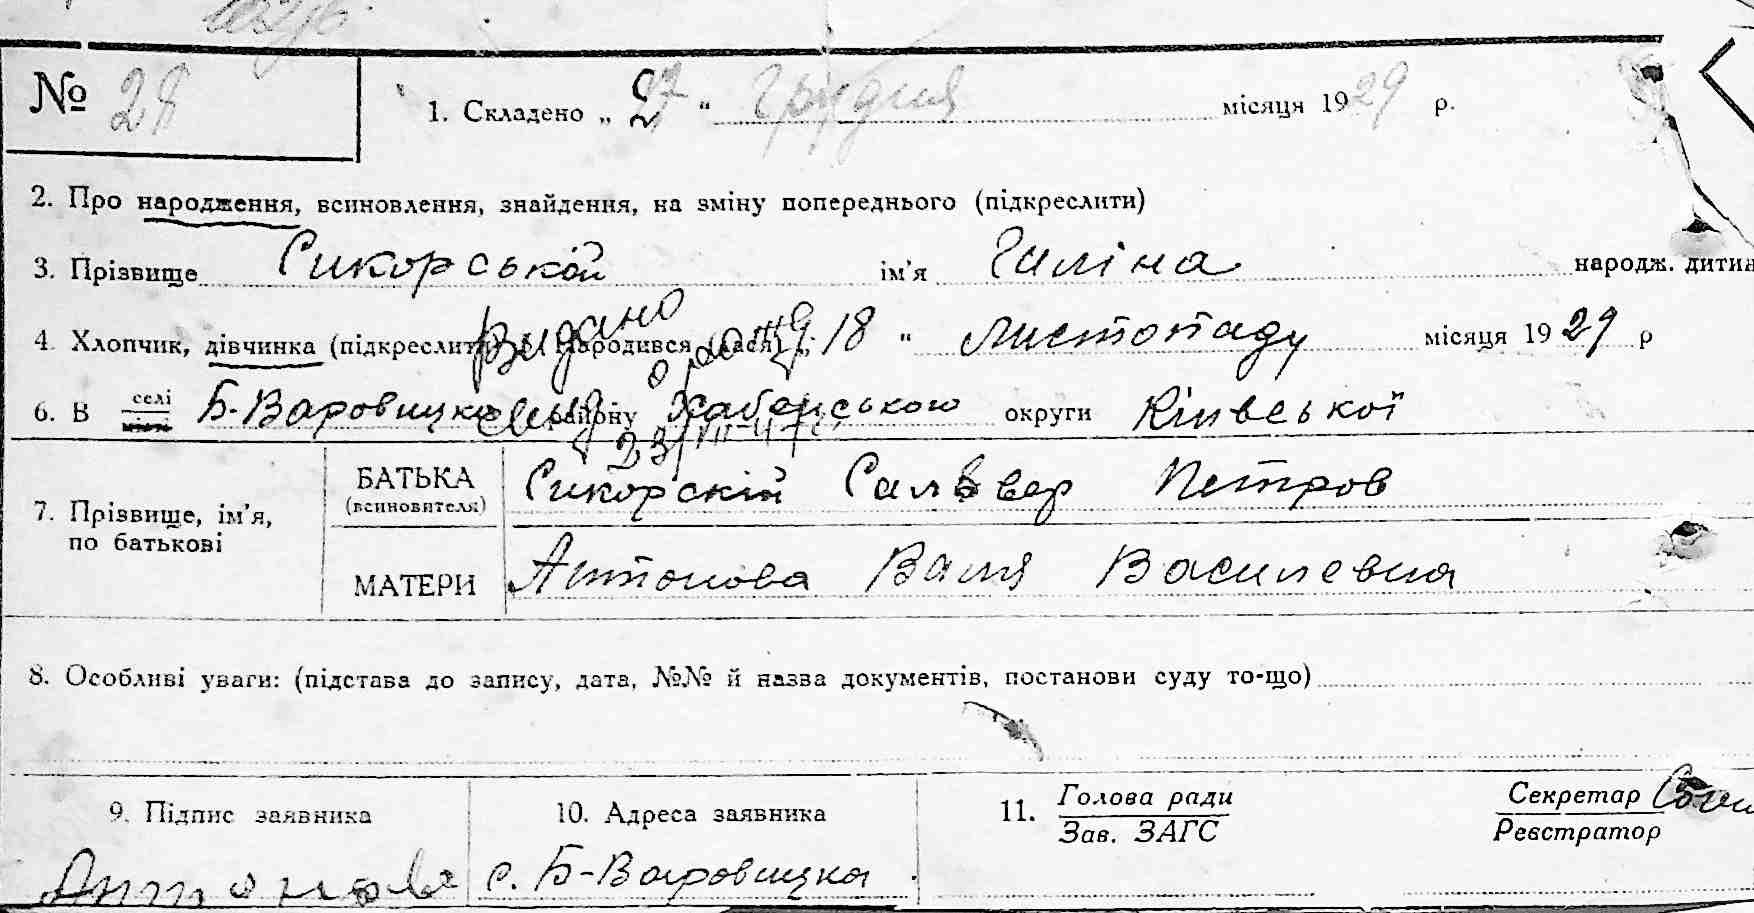 № 28
1. Складено „ 27 “ Грудня місяця 1929 р.
2. Про народження, всиновлення, знайдення, на зміну попереднього (підкреслити)
3. Прізвище Сикорської ім'я Галіна народж. дитин
4. Хлопчик, дівчинка (підкреслити) 5. Народився (лася) „ 18 “ Листопаду місяця 1929 р
Видано
6. В селі місті Б-Варовицка району Хабенською округи Київської
23/VIII 47
7. Прізвище, ім'я, по батькові
БАТЬКА (всиновителя) Сикорскій Сальвер Петров
МАТЕРИ Антонова Валя Василевна
8. Особливі уваги: (підстава до запису, дата, №№ й назва документів, постанови суду то-що)
9. Підпис заявника 10. Адреса заявника 11. Голова ради Секретар
Зав. ЗАГС Реєстратор
Антонова с. Б-Варовицка